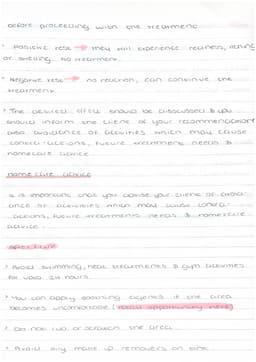 before proceeding with the treatment
• Positive rest → they will experience redness, itching
or swelling. No treatment.
• Negative rest → no reaction, can continue the
treatment.
• The desired effect should be discussed & you
should inform the client of your recommendations
and avoidance of activities which may cause
contra-actions, future treatment needs &
homecare advice
homecare advice
It is important that you advise your client of avoid-
ance of activities which may cause contra-
actions, future treatments needs & homecare
advice.
aftercare
• Avoid swimming, heat treatments & gym activities
for 24 hours
• You can apply cooling agents if the area
becomes uncomfortable
• Do not rub or scratch the area.
• Avoid any make up removers on